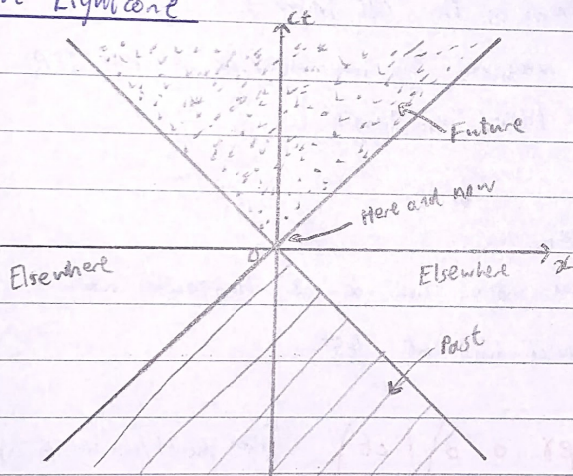 Lightcone
ct
Future
Here and now
O
x
Elsewhere
Elsewhere
Past